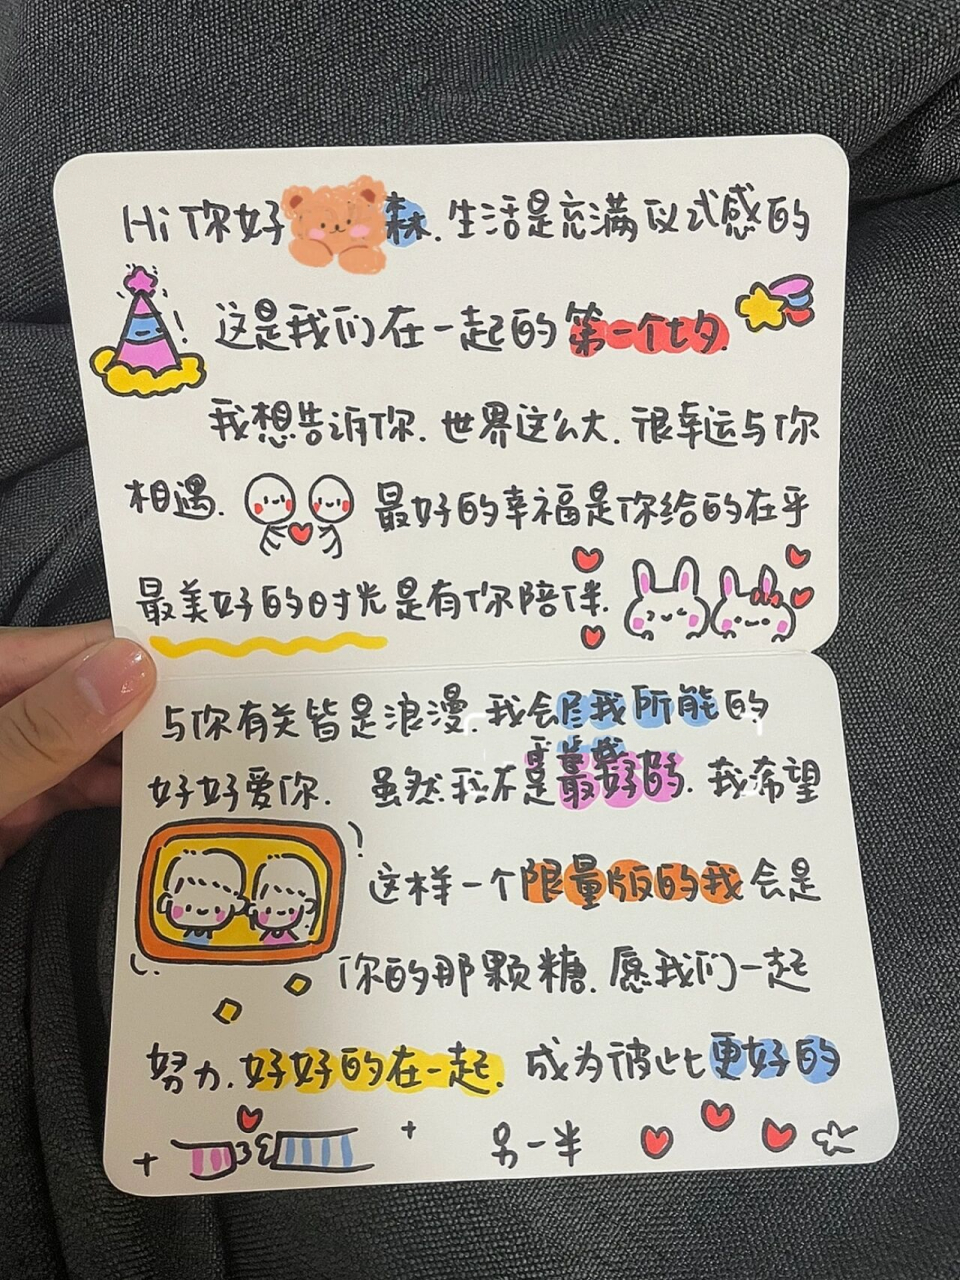 Hi 你好 森. 生活是充满仪式感的
这是我们在一起的第一个七夕.
我想告诉你. 世界这么大. 很幸运与你
相遇. 最好的幸福是你给的在乎
最美好的时光是有你陪伴.
与你有关皆是浪漫. 我会尽我所能的
好好爱你. 虽然我不是最好的. 我希望
这样一个限量版的我会是
你的那颗糖. 愿我们一起
努力. 好好的在一起. 成为彼此更好的
另一半